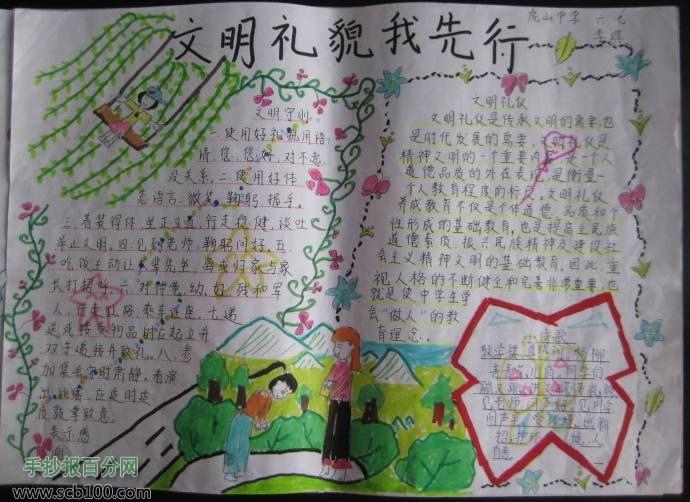 文明礼貌我先行
虎山中学 六七
文明守则
一.使用好礼貌用语:
请.您.您好.对不起.
没关系.二.使用好体
态语言:微笑.鞠躬.握手.
三.着装得体.坐正立直.行走稳健.谈吐
举止文明.四.见到老师.鞠躬问好.五.
吃饭主动让长辈先坐.离家归家与家
长打招呼.六.对待老.幼.妇.残和军
人.行走让路.乘车让座.七.递
送或接受物品时应起立并
双手递接并致礼.八.参
加集会时肃静.看演
出.比赛.应适时适
度鼓掌致意.
表示感
文明礼仪
文明礼仪是传承文明的需要,也
是时代发展的需要.文明礼仪是
精神文明的一个重要内容,是一个人
道德品质的外在表现,是衡量一
个人教育程度的标尺.文明礼仪
养成教育不仅是个体道德、品质和个
性形成的基础教育,也是提高全民族
道德素质、振兴民族精神及建设社
会主义精神文明的基础教育.因此,重
视人格的不断健全和完善非常重要,也
就是使中学生学
会“做人”的教
育理念.
手抄报百分网
www.scb100.com